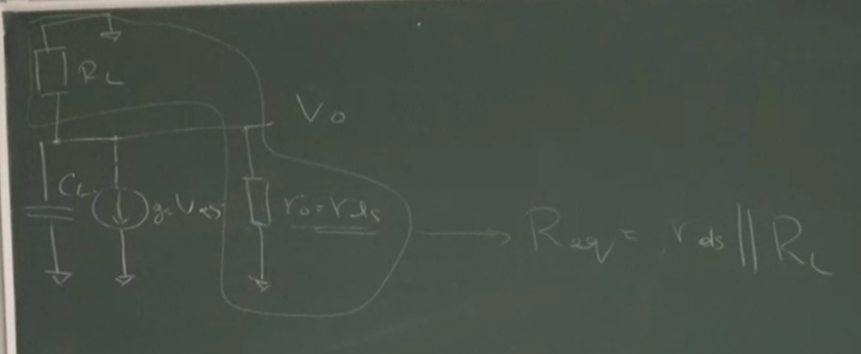 R_L
V_o
C_L
g_m V_gs
r_o = r_ds
R_eq = r_ds || R_L